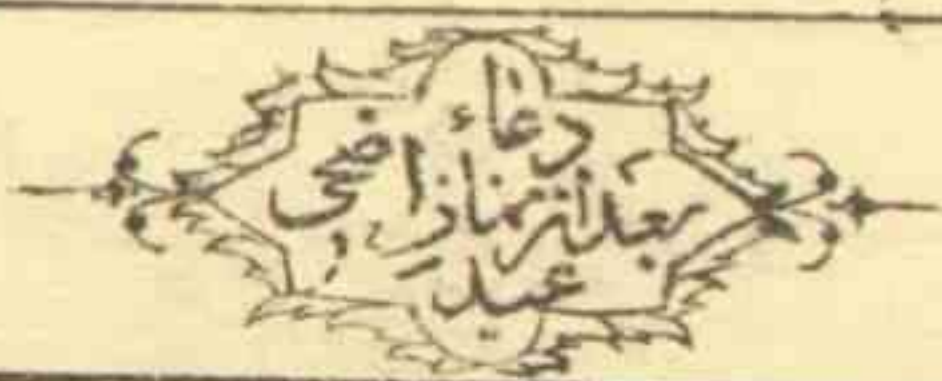 دعاء
بعد از نماز
عید اضحی